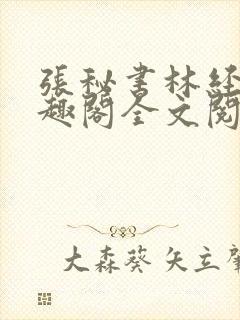 張秘書林經
趣閣全文閱
大森葵 矢立肇